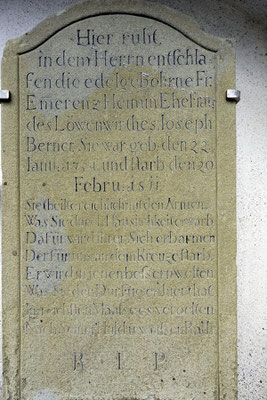 Hier ruht
in dem Herrn entschla
fen die edelgebohrne Fr:
Emerenz Hemin Ehefrau
des Löwenwirthes Joseph
Berner. Sie war geb. den 22
und starb den 20
Febru. 1811
Sie theilte reichlich mit den Armen,
Was Sie durch Häuslichkeit erwarb
Dafür wird ihrer Sich erbarmen
Der für uns an dem Kreuze starb.
Er wird in jenen bessern Welten
Was Sie den Dürftigen hier that
Im reichsten Maase es vergelten
R I P